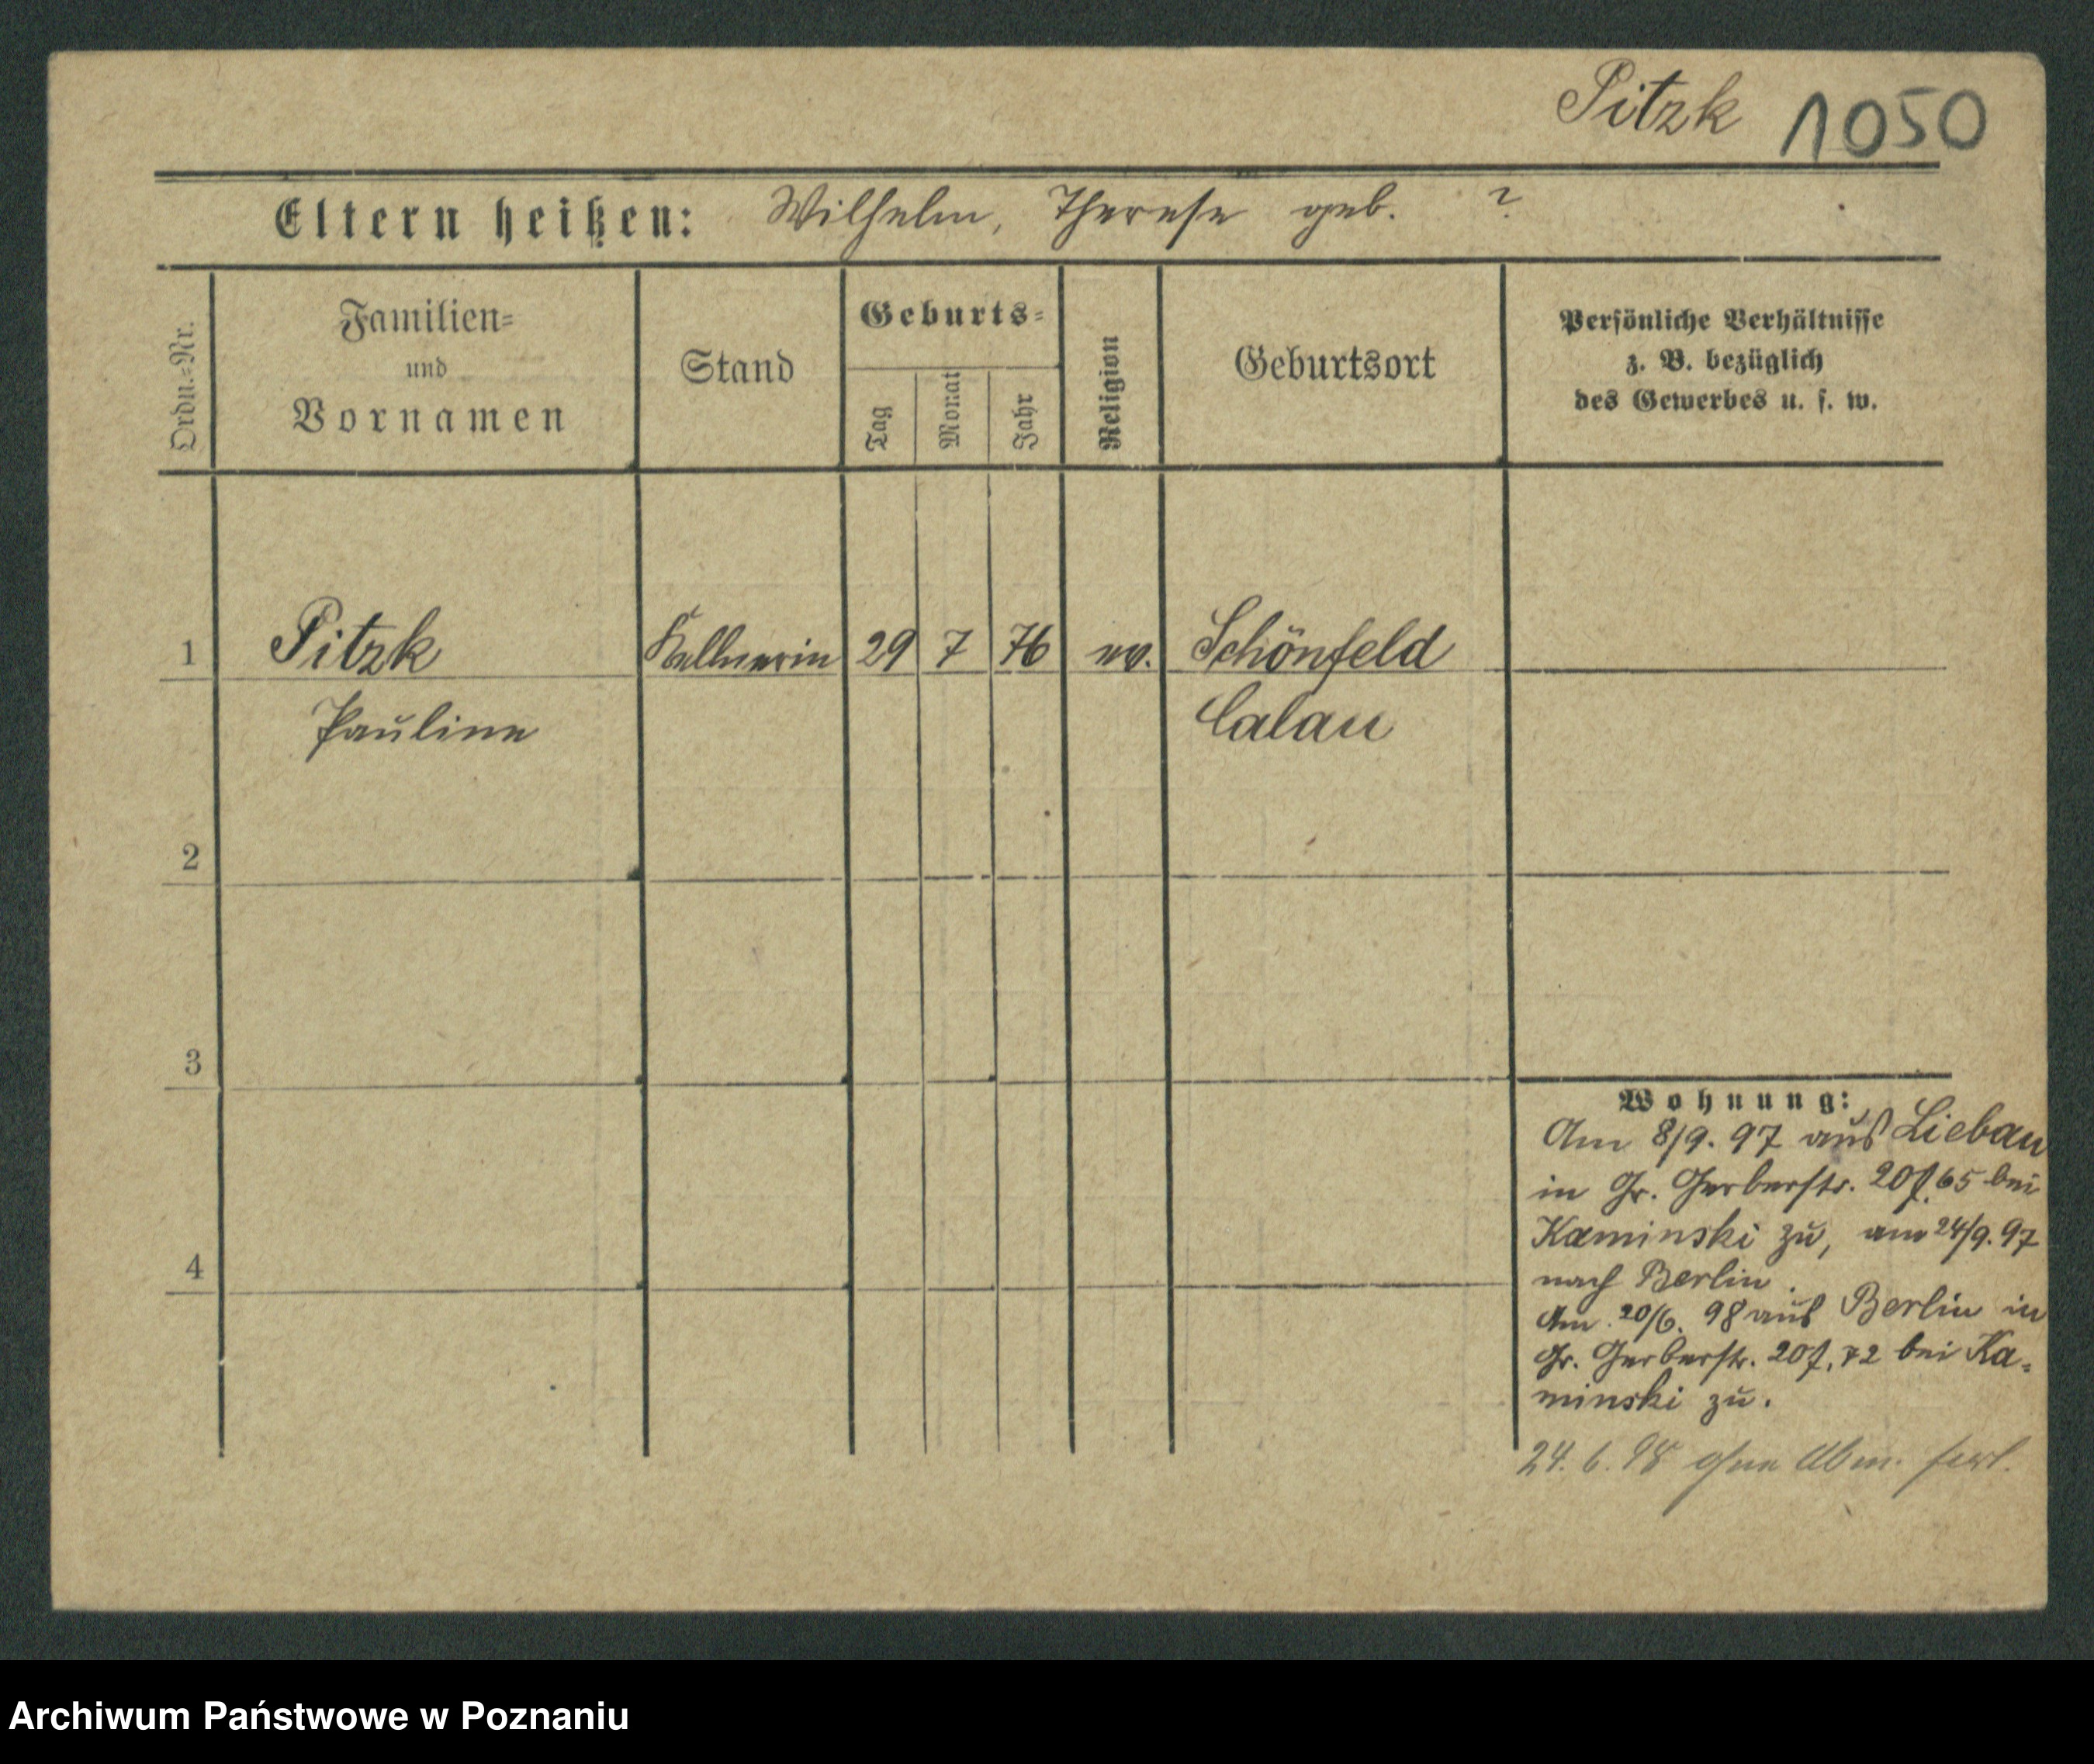 Pitzk 1050
Eltern heißen: Wilhelm, Therese geb. ?
Ordn.=Nr.
Familien=
und
Vornamen
Stand
Geburts=
Tag
Monat
Jahr
Religion
Geburtsort
Persönliche Verhältnisse
z. B. bezüglich
des Gewerbes u. s. w.
1 Pitzk Kellnerin 29 7 76 ev. Schönfeld
Pauline Calau
2
3
4
Wohnung:
Am 8/9. 97 aus Liebau
in Gr. Gerberstr. 20 65 bei
Kaminski zu, am 24/9. 97
nach Berlin.
Am 20/6. 98 aus Berlin in
Gr. Gerberstr. 20 72 bei Ka=
minski zu.
24. 6. 98 ohne Abm.
Archiwum Państwowe w Poznaniu